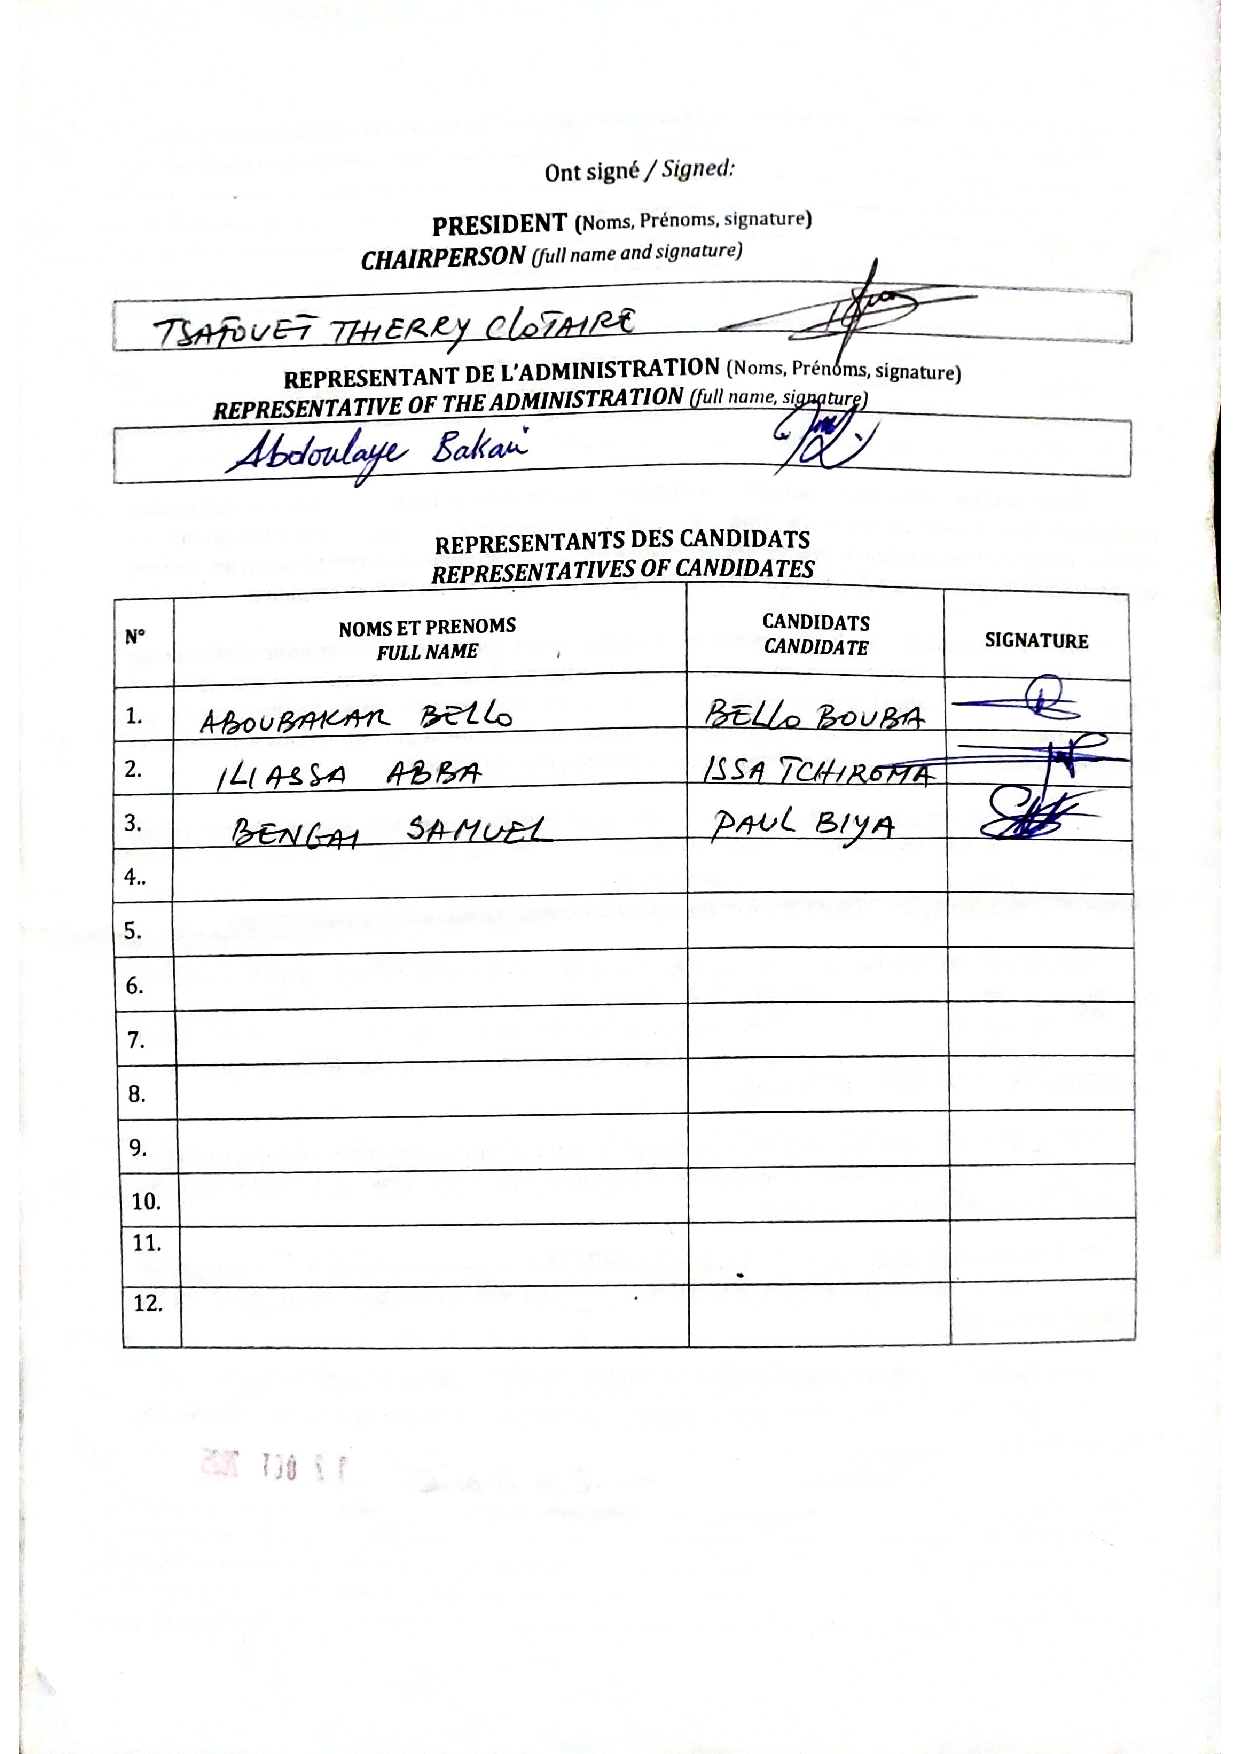 Ont signé / Signed:
PRESIDENT (Noms, Prénoms, signature)
CHAIRPERSON (full name and signature)
TSAFOUET THIERRY CLOTAIRE
REPRESENTANT DE L'ADMINISTRATION (Noms, Prénoms, signature)
REPRESENTATIVE OF THE ADMINISTRATION (full name, signature)
Abdoulaye Bakari
REPRESENTANTS DES CANDIDATS
REPRESENTATIVES OF CANDIDATES
N° NOMS ET PRENOMS CANDIDATS SIGNATURE
FULL NAME CANDIDATE
1. ABOUBAKAR BELLO BELLO BOUBA
2. ILIASSA ABBA ISSA TCHIROMA
3. BENGAI SAMUEL PAUL BIYA
4..
5.
6.
7.
8.
9.
10.
11.
12.